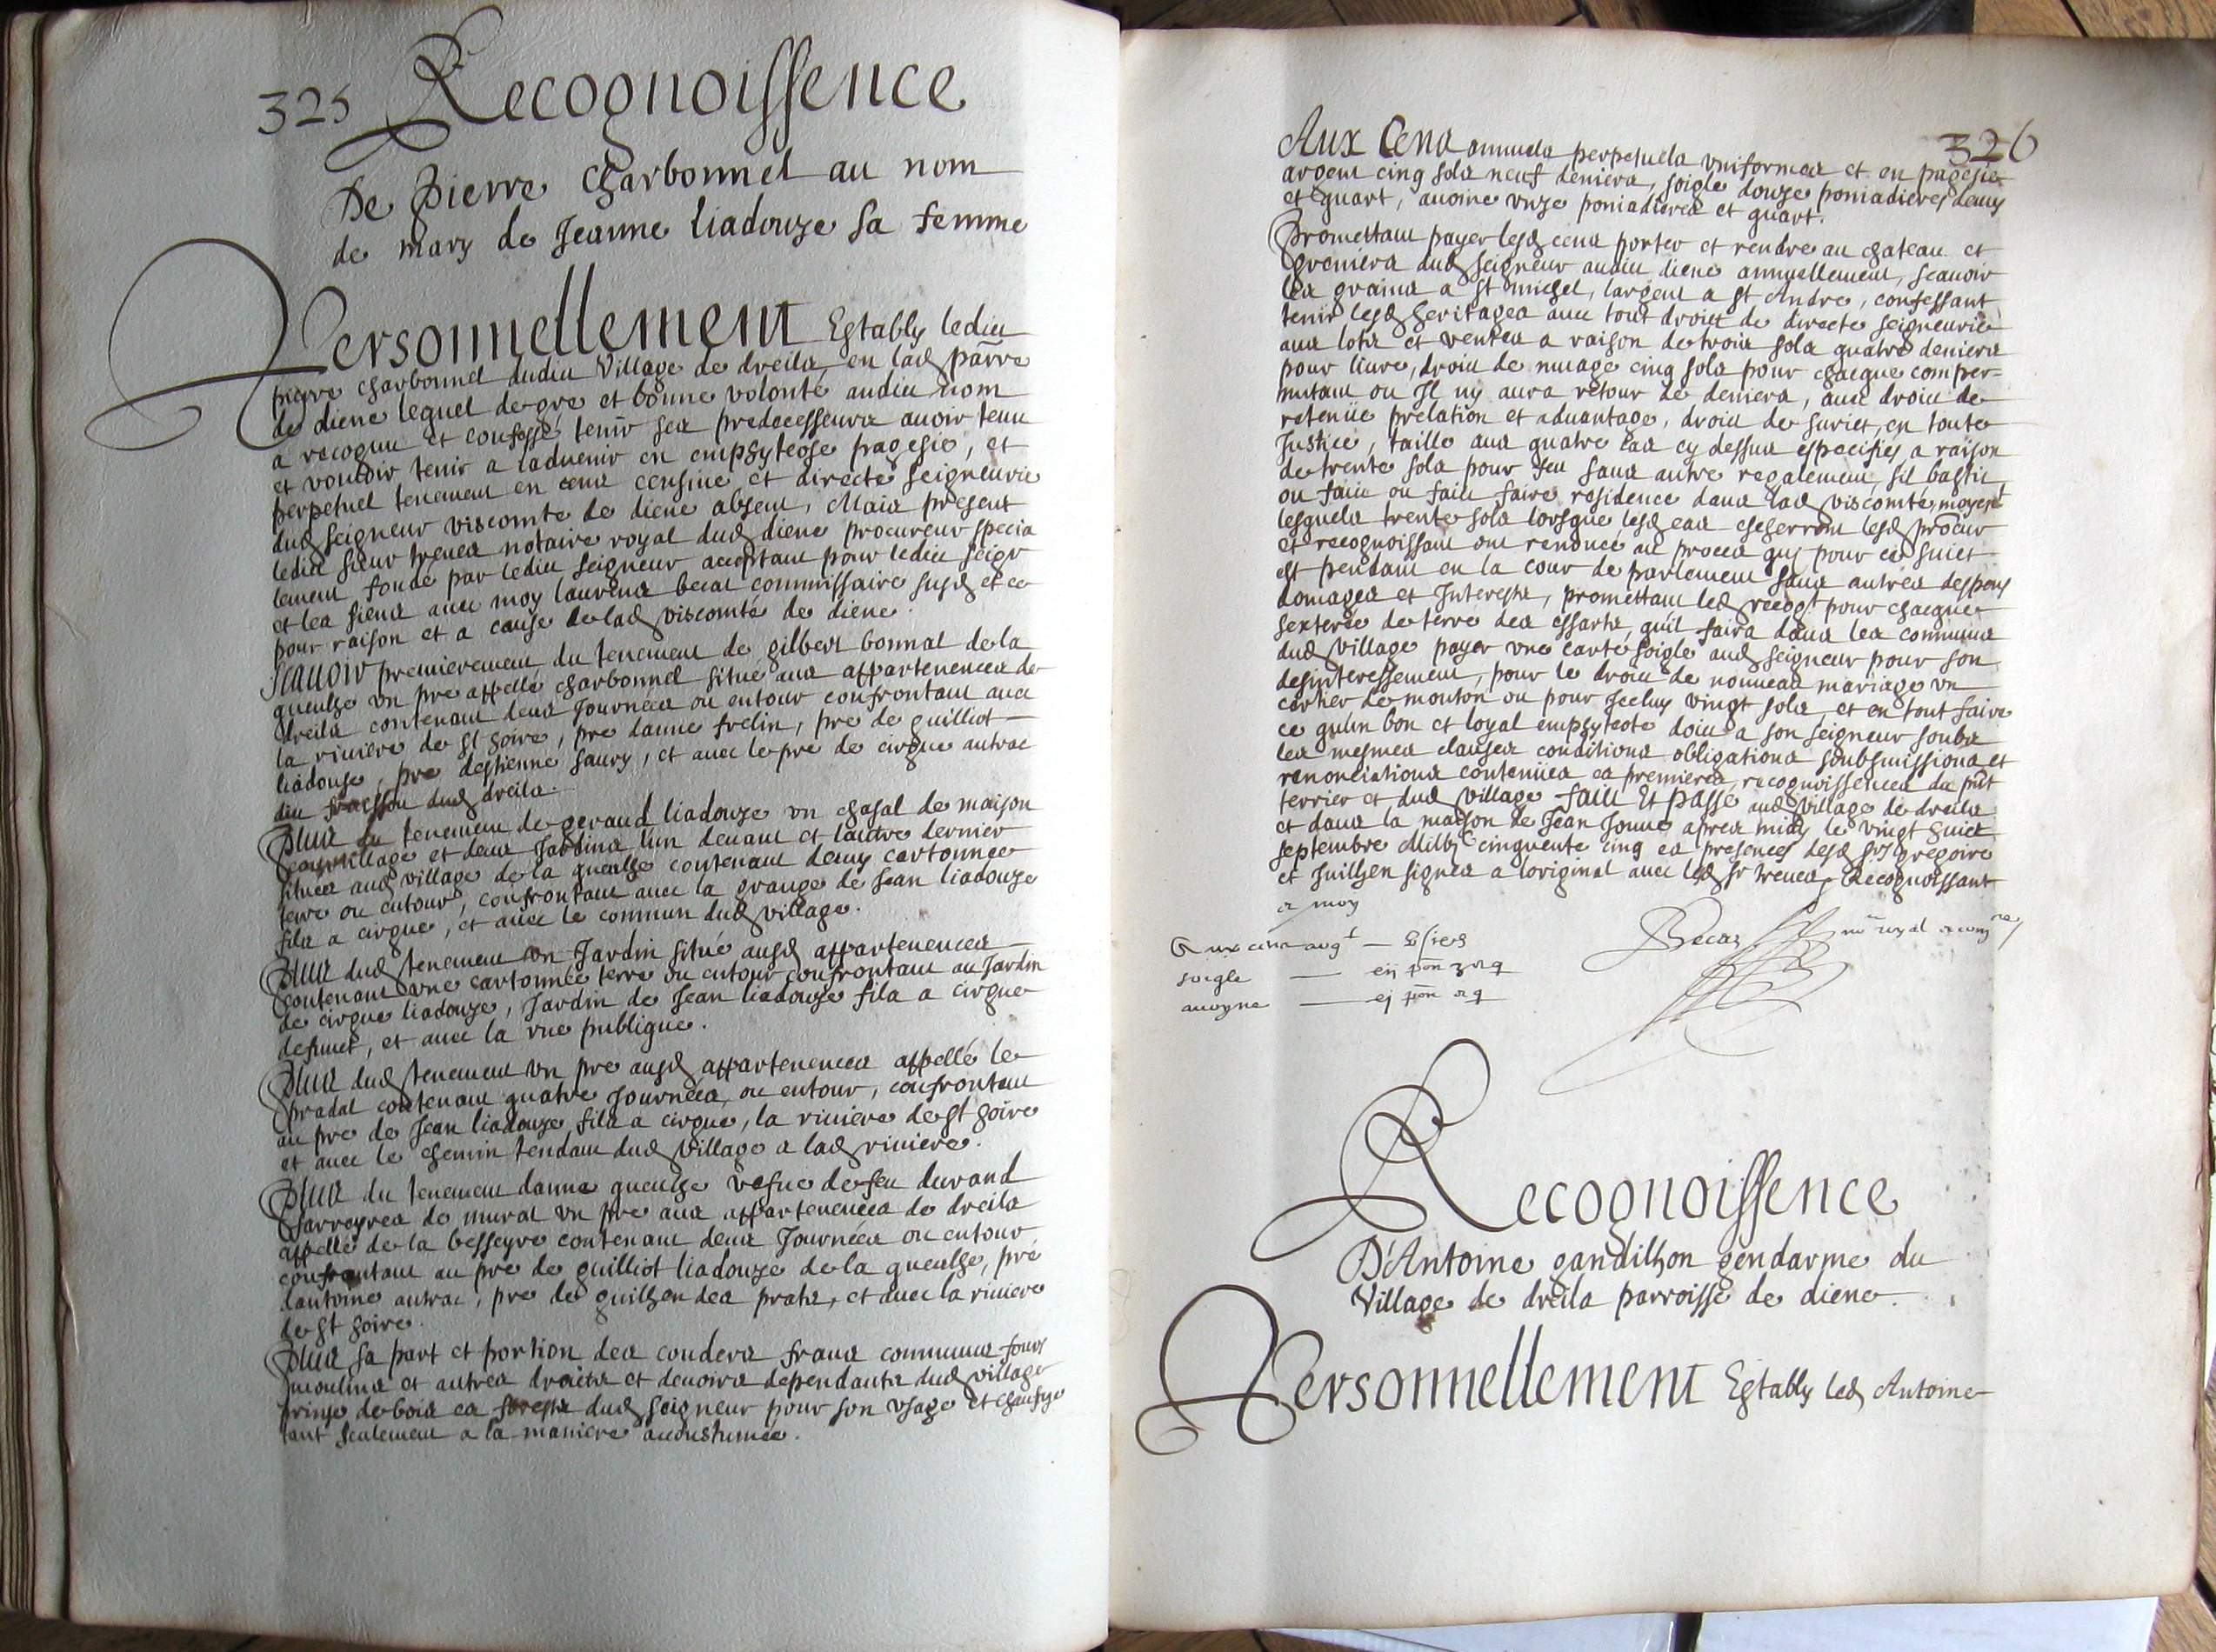 325 Recognoissence
De Pierre Charbonnel au nom
de mary de Jeanne liadouze sa femme
Personnellement Estably ledict
pierre charbonnel dudict Village de dreils en lad parre
de diene lequel de gre et bonne volonté audict nom
a recognu et confessé tenir ses predecesseurs avoir tenu
et vouloir tenir a ladvenir en emphyteose pagesie, et
perpetuel tenement en cens censive et directe seigneurie
dud seigneur viscomte de diene absent, Mais present
ledict sieur treues notaire royal dud diene procureur specia
lement fondé par ledict seigneur acceptant pour ledict seigr
et les siens avec moy laurens becat commissaire susd et ce
pour raison et a cause de lad viscomte de diene.
Scauoir premierement du tenement de gilbert bonnal de la
gueulhe un pre appellé charbonnel situé aux appartenences de
dreils contenant deux Journées ou entour confrontant avec
la riviere de st hoire, pre danne frelin, pre de guilliot
liadouze, pre destienne saury, et avec le pre de cirgue autrac
dit dud dreils.
Plus du tenement de geraud liadouze un chasal de maison
et deux Jardins lun devant et lautre dernier
situes aud village de la gueulhe contenant demy cartonnee
terre ou entour, confrontant avec la grange de Jean liadouze
fils a cirgue, et avec le commun dud village.
Plus dud tenement un Jardin situé ausd appartenences
contenant une cartonnée terre ou entour confrontant au Jardin
de cirgue liadouze, Jardin de Jean liadouze fils a cirgue
defunct, et avec la rue publique.
Plus dud tenement un pre ausd appartenences appellé le
pradal contenant quatre Journées ou entour, confrontant
au pre de Jean liadouze fils a cirgue, la riviere de st hoire
et avec le chemin tendant dud village a lad riviere.
Plus du tenement danne gueulhe vefue de feu durand
farreyres de murat un pre aux appartenences de dreils
appelle de la besseyre contenant deux Journées ou entour
confrontant au pre de guilliot liadouze de la gueulhe, pre
dantoine autrac, pre de guilhen des prats, et avec la riviere
de st hoire.
Plus sa part et portion des couders fraus communs fours
moulins et autres droicts et devoirs dependants dud village
prinse de bois es forests dud seigneur pour son usage et chaufage
tant seulement a la maniere accoustumée.
326
Aux Cens annuels perpetuels uniformes et en pagesie
argent cinq sols neuf deniers, soigle douze poniadieres demy
et quart, avoine unze poniadieres et quart.
Promettant payer lesd cens porter et rendre au chateau et
greniers dud seigneur audict diene annuellement, scavoir
les grains a st michel, largent a st Andre, confessant
tenir lesd heritages avec tout droict de directe seigneurie
aux lots et ventes a raison de trois sols quatre deniers
pour livre, droict de muage cinq sols pour chacque comper=
mutant ou Il ny aura retour de deniers, avec droict de
retenüe prelation et advantage, droict de suriet, en toute
Justice, taille aux quatre cas cy dessus especifies a raison
de trente sols pour feu sans autre regalement, sil bastit
ou faict ou faict faire residence dans lad viscomte, moyent
lesquels trente sols lorsque lesd cas escherront lesd procur
et recognoissant ont renoncé au proces quy pour ce suiet
est pendant en la cour de parlement sans autres despens
domages et Interests, promettant led recogt pour chacque
sexterée de terre des essarts, quil faira dans les communs
dud village payer une carte soigle aud seigneur pour son
desinteressement, pour le droict de nouveau mariage un
cartier de mouton ou pour Jceluy vingt sols, et en tout faire
ce quun bon et loyal emphyteote doict a son seigneur soubs
les mesmes clauses conditions obligations soubsmissions et
renonciations contenües es premieres recognoissences du pnt
terrier et dud village faict Et passé aud village de dreils
et dans la maison de Jean Jouve apres midy le vingt huict
septembre Mil VI C cinquente cinq es presences desd srs gregoire
et Juilhen signes a loriginal avec led sr treues, Recognoissant
et moy
Becat nre royal et comre
Aux cens argt
soigle
avoyne
Recognoissence
D'Antoine gandilhon gendarme du
Village de dreils parroisse de diene.
Personnellement Estably led Antoine